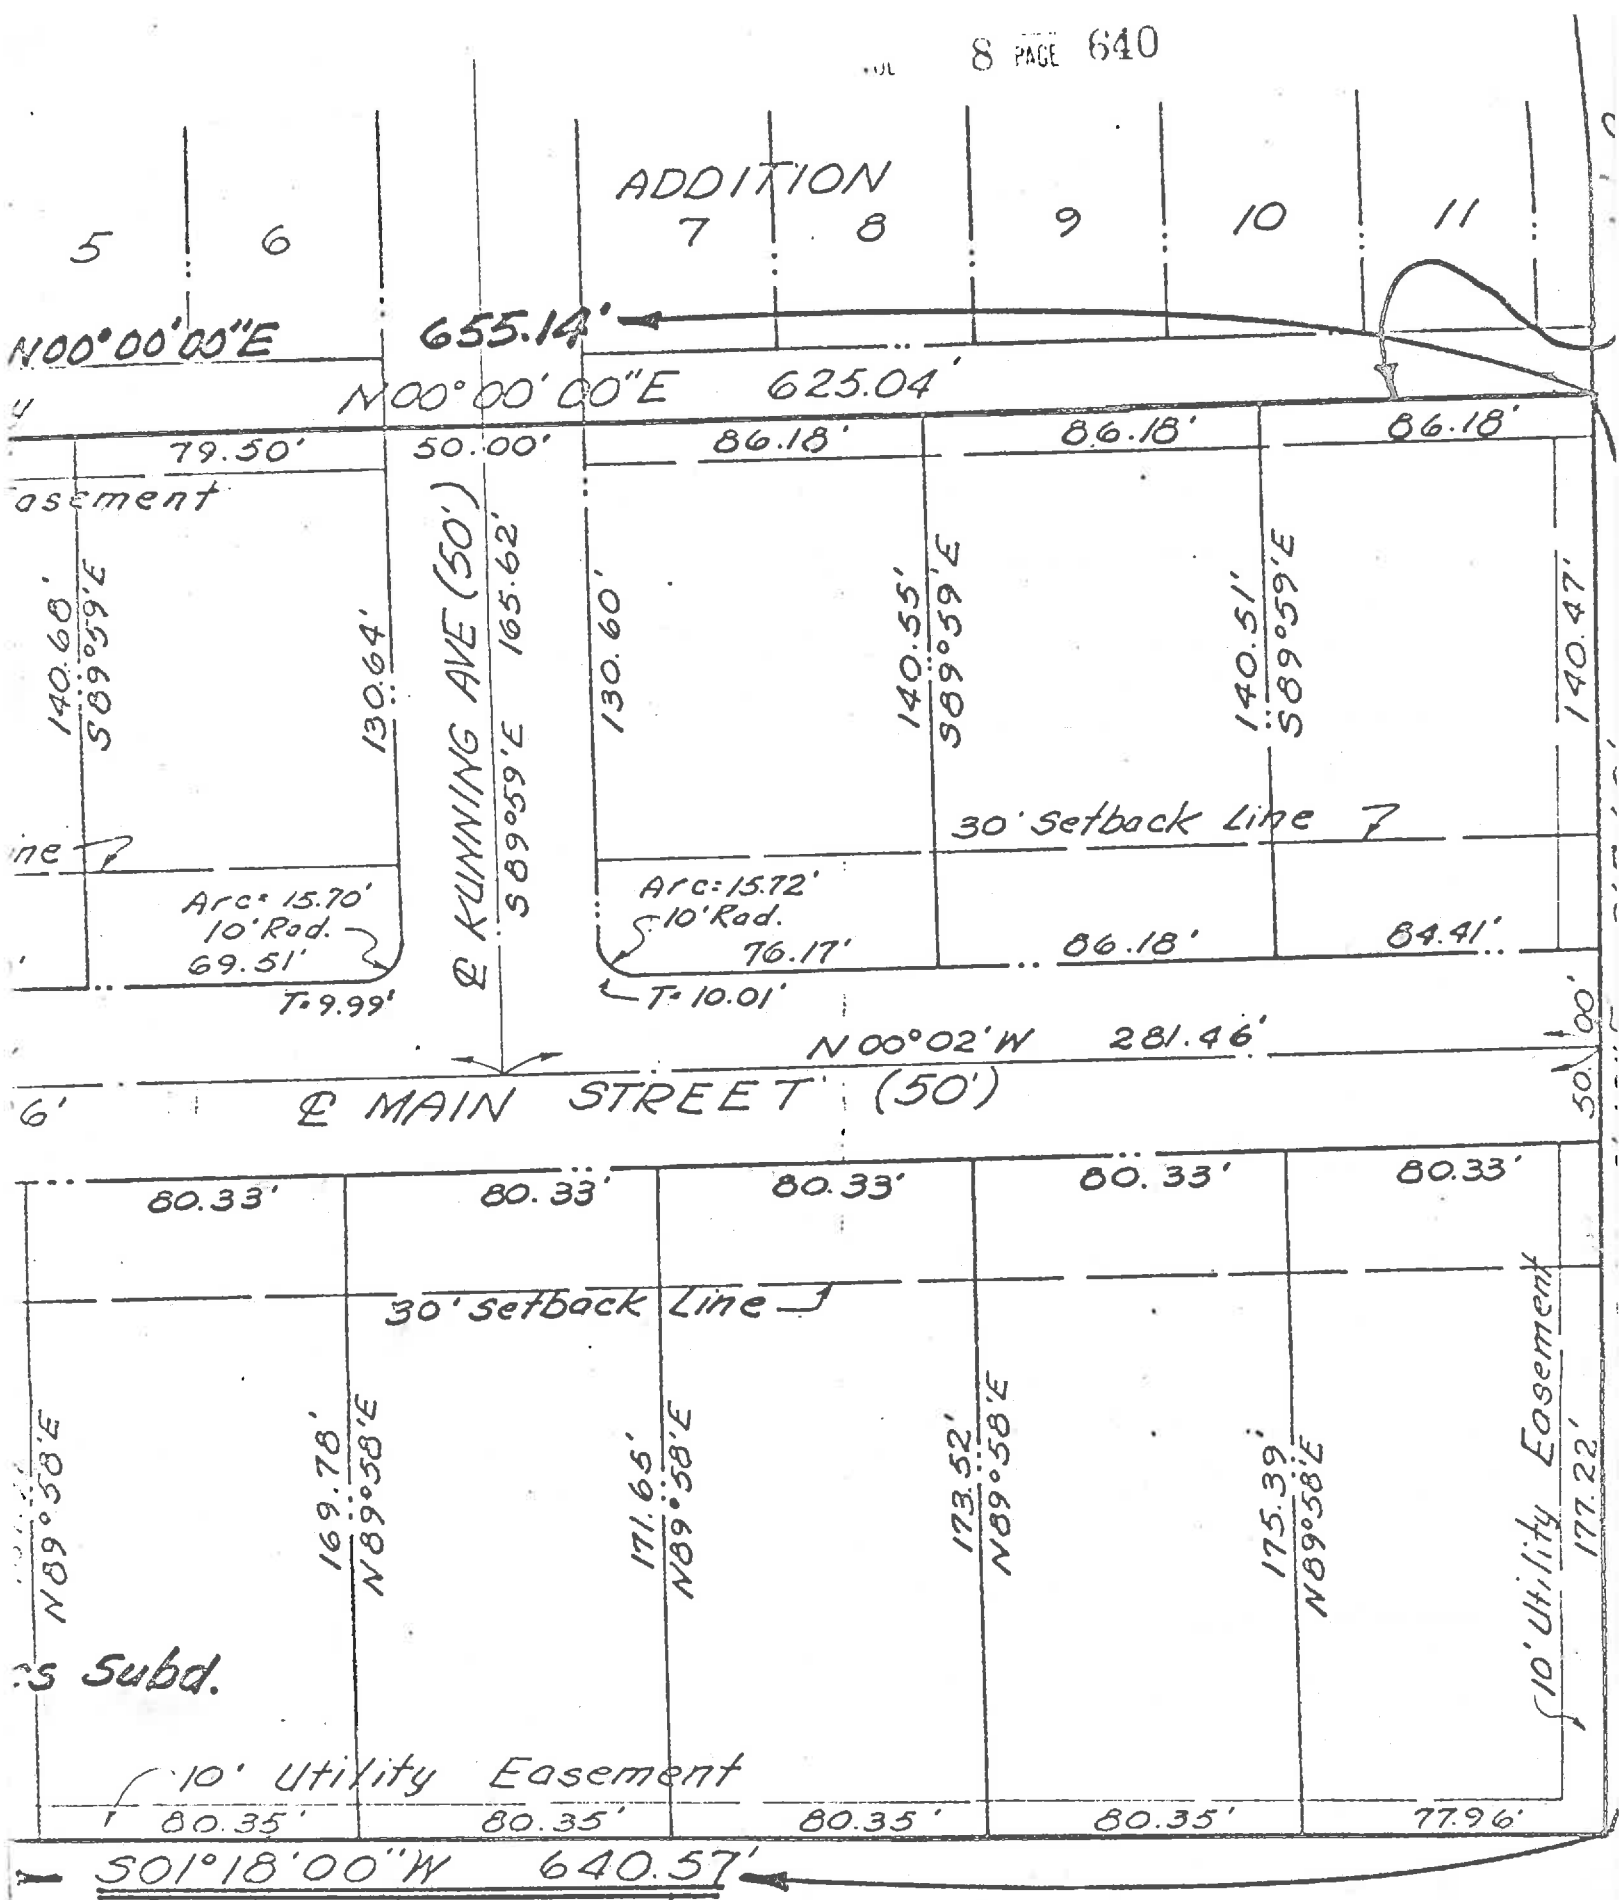 8 PAGE 640
ADDITION
5 6 7 8 9 10 11
N00°00'00"E 655.14'
N00°00'00"E 625.04'
79.50' 50.00' 86.18' 86.18' 86.18'
140.68'
S89°59'E
130.64'
℄ KUNNING AVE (50')
S89°59'E 165.62'
130.60'
140.55'
S89°59'E
140.51'
S89°59'E
140.47'
30' Setback Line
Arc= 15.70'
10' Rad.
69.51'
T=9.99'
Arc=15.72'
10' Rad.
76.17' 86.18' 84.41'
T=10.01'
N00°02'W 281.46'
50.00'
6'
℄ MAIN STREET (50')
80.33' 80.33' 80.33' 80.33' 80.33'
30' Setback Line
N89°58'E
169.78'
N89°58'E
171.65'
N89°58'E
173.52'
N89°58'E
175.39'
N89°58'E
10' Utility Easement
177.22'
Subd.
10' Utility Easement
80.35' 80.35' 80.35' 80.35' 77.96'
S01°18'00"W 640.57'